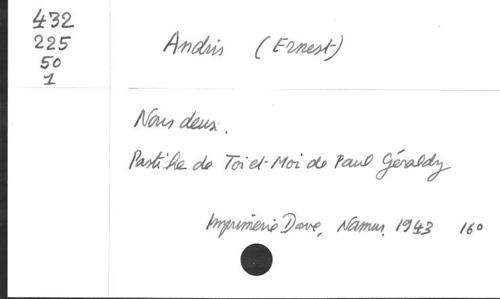 432
225
50
1
Andris (Ernest)
Nous deux.
Pastiche de Toi et Moi de Paul Géraldy
Imprimerie Dave, Namur. 1943 16°